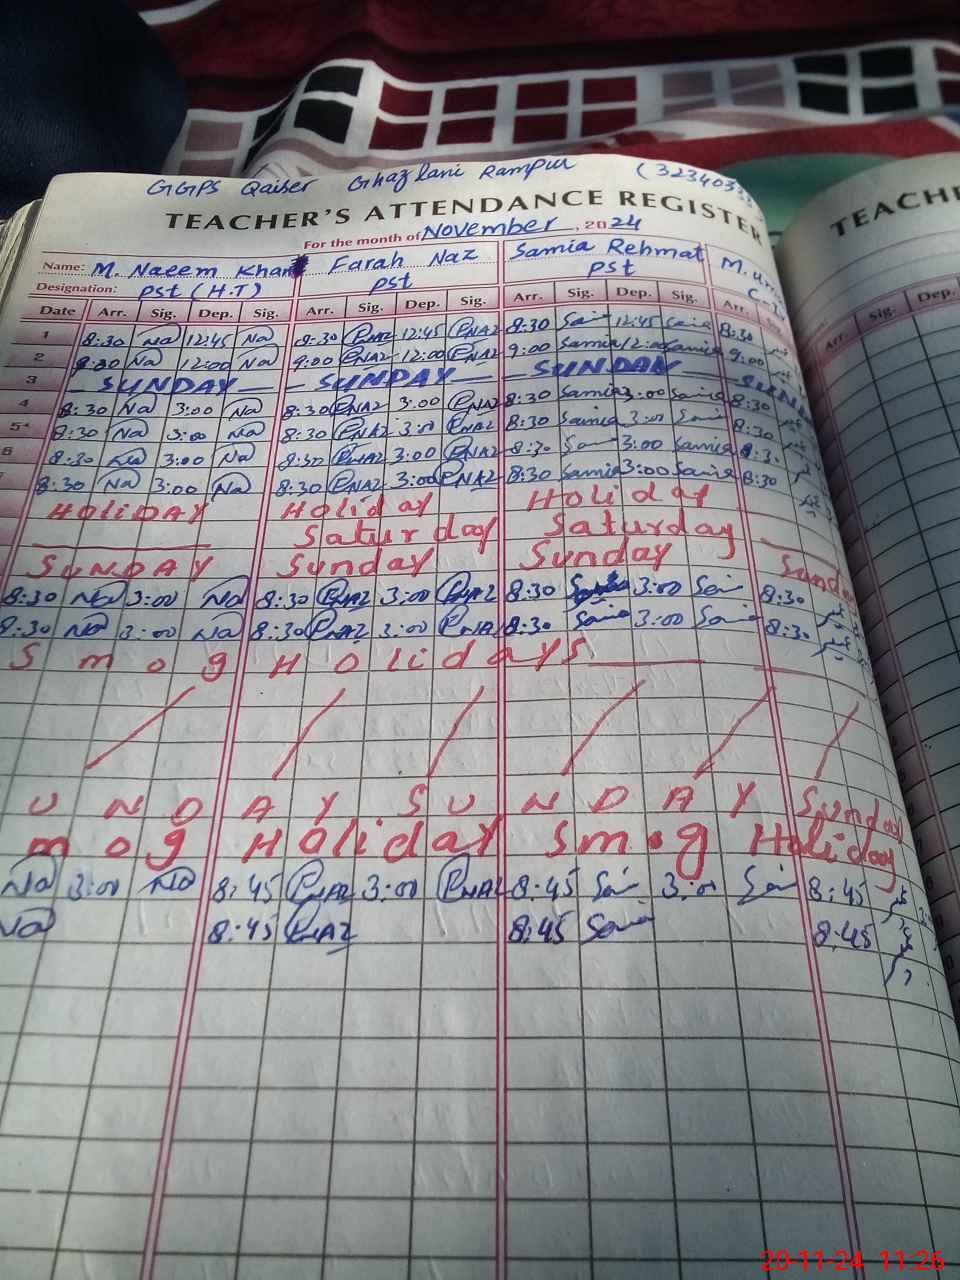 GGPS Qaiser Ghazlani Rampur (323403
TEACHER'S ATTENDANCE REGISTER TEACH
For the month of November, 2024
Name: M. Naeem Khan Farah Naz Samia Rehmat M.
Designation: PST (H.T) PST PST
Date Arr. Sig. Dep. Sig. Arr. Sig. Dep. Sig. Arr. Sig. Dep. Sig. Arr. Arr. Sig. Dep.
1 8:30 Na 12:45 Na 8:30 PNAZ 12:45 PNAZ 8:30 Samia 12:45 Samia 8:30
2 9:00 Na 12:00 Na 9:00 PNAZ 12:00 PNAZ 9:00 Samia 12:00 Samia 9:00
3 SUNDAY SUNDAY SUNDAY SUNDAY
4 8:30 Na 3:00 Na 8:30 PNAZ 3:00 PNAZ 8:30 Samia 3:00 Samia 8:30
5 8:30 Na 3:00 Na 8:30 PNAZ 3:00 PNAZ 8:30 Samia 3:00 Samia 8:30
6 8:30 Na 3:00 Na 8:30 PNAZ 3:00 PNAZ 8:30 Samia 3:00 Samia 8:30
8:30 Na 3:00 Na 8:30 PNAZ 3:00 PNAZ 8:30 Samia 3:00 Samia 8:30
HOLIDAY Holiday Holiday
Saturday Saturday
SUNDAY Sunday Sunday Sunday
8:30 Na 3:00 Na 8:30 PNAZ 3:00 PNAZ 8:30 3:00 Sam 8:30
8:30 Na 3:00 Na 8:30 PNAZ 3:00 PNAZ 8:30 Samia 3:00 Sam 8:30
Smog Holidays
UNDAY SUNDAY Sunday
mog Holiday Smog Holiday
Na 3:00 Na 8:45 PNAZ 3:00 PNAZ 8:45 Sam 3:00 Sam 8:45
Na 8:45 PNAZ 8:45 Sam 8:45
20-11-24 11:26